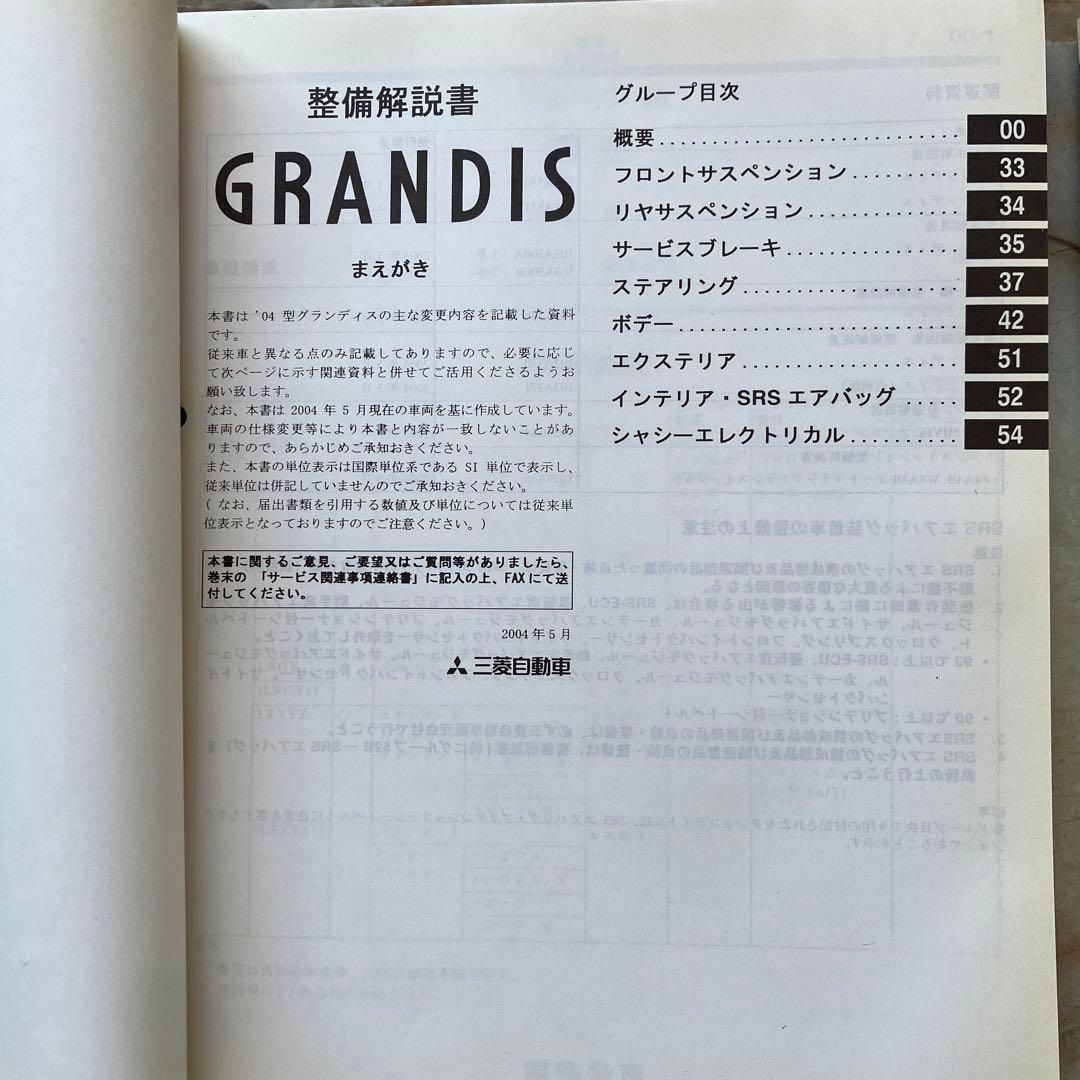 整備解説書
GRANDIS
まえがき
本書は '04 型グランディスの主な変更内容を記載した資料
です。
従来車と異なる点のみ記載してありますので、必要に応じ
て次ページに示す関連資料と併せてご活用くださるようお
願い致します。
なお、本書は 2004 年 5 月現在の車両を基に作成しています。
車両の仕様変更等により本書と内容が一致しないことがあ
りますので、あらかじめご承知おきください。
また、本書の単位表示は国際単位系である SI 単位で表示し、
従来単位は併記していませんのでご承知おきください。
( なお、届出書類を引用する数値及び単位については従来単
位表示となっておりますのでご注意ください。)
本書に関するご意見、ご要望又はご質問等がありましたら、
巻末の 「サービス関連事項連絡書」に記入の上、FAX にて送
付してください。
2004 年 5 月
三菱自動車
グループ目次
概要............................ 00
フロントサスペンション.......... 33
リヤサスペンション.............. 34
サービスブレーキ................ 35
ステアリング.................... 37
ボデー.......................... 42
エクステリア.................... 51
インテリア・SRS エアバッグ ..... 52
シャシーエレクトリカル.......... 54